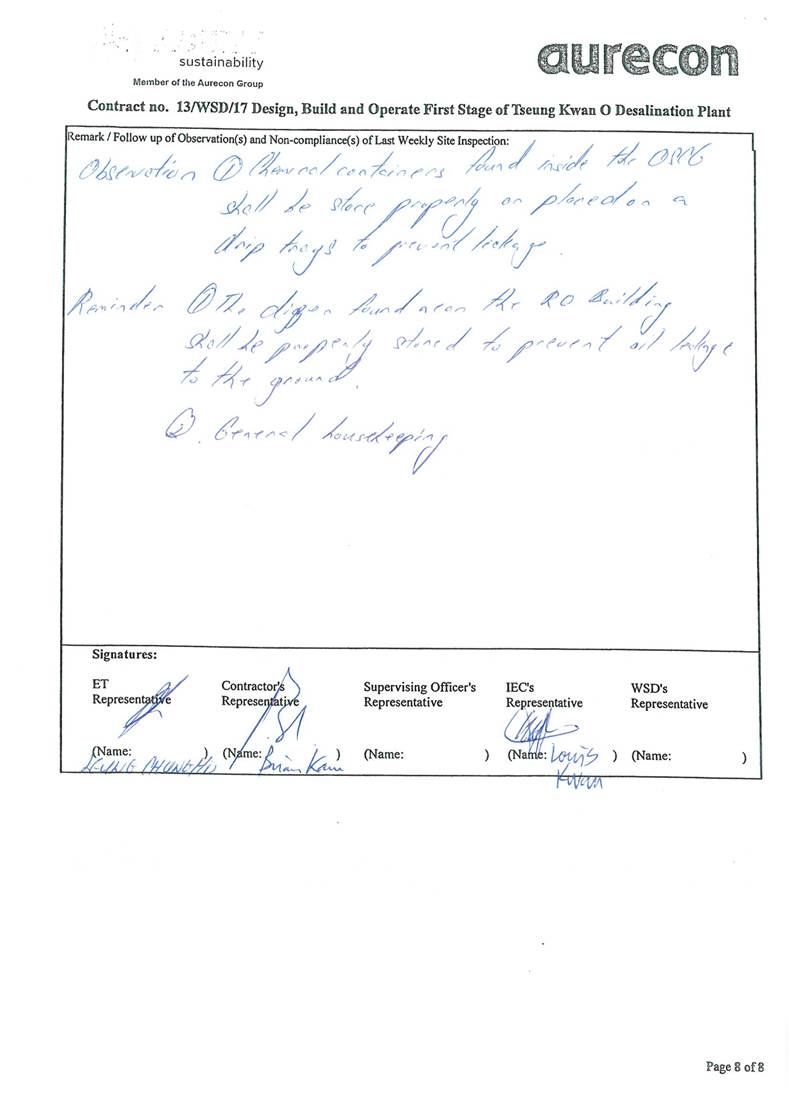 sustainability
Member of the Aurecon Group
aurecon
Contract no. 13/WSD/17 Design, Build and Operate First Stage of Tseung Kwan O Desalination Plant
Remark / Follow up of Observation(s) and Non-compliance(s) of Last Weekly Site Inspection:
Observation ① Chemical containers found inside the OSCG
shall be store properly or placed on a
drip trays to prevent leakage.
Reminder ① The digger found near the RO Building
shall be properly stored to prevent oil leakage
to the ground.
②. General housekeeping
Signatures:
ET Representative
Contractor's Representative
Supervising Officer's Representative
IEC's Representative
WSD's Representative
(Name: )
(Name: Brian Kam )
(Name: )
(Name: Louis Kwan )
(Name: )
Page 8 of 8